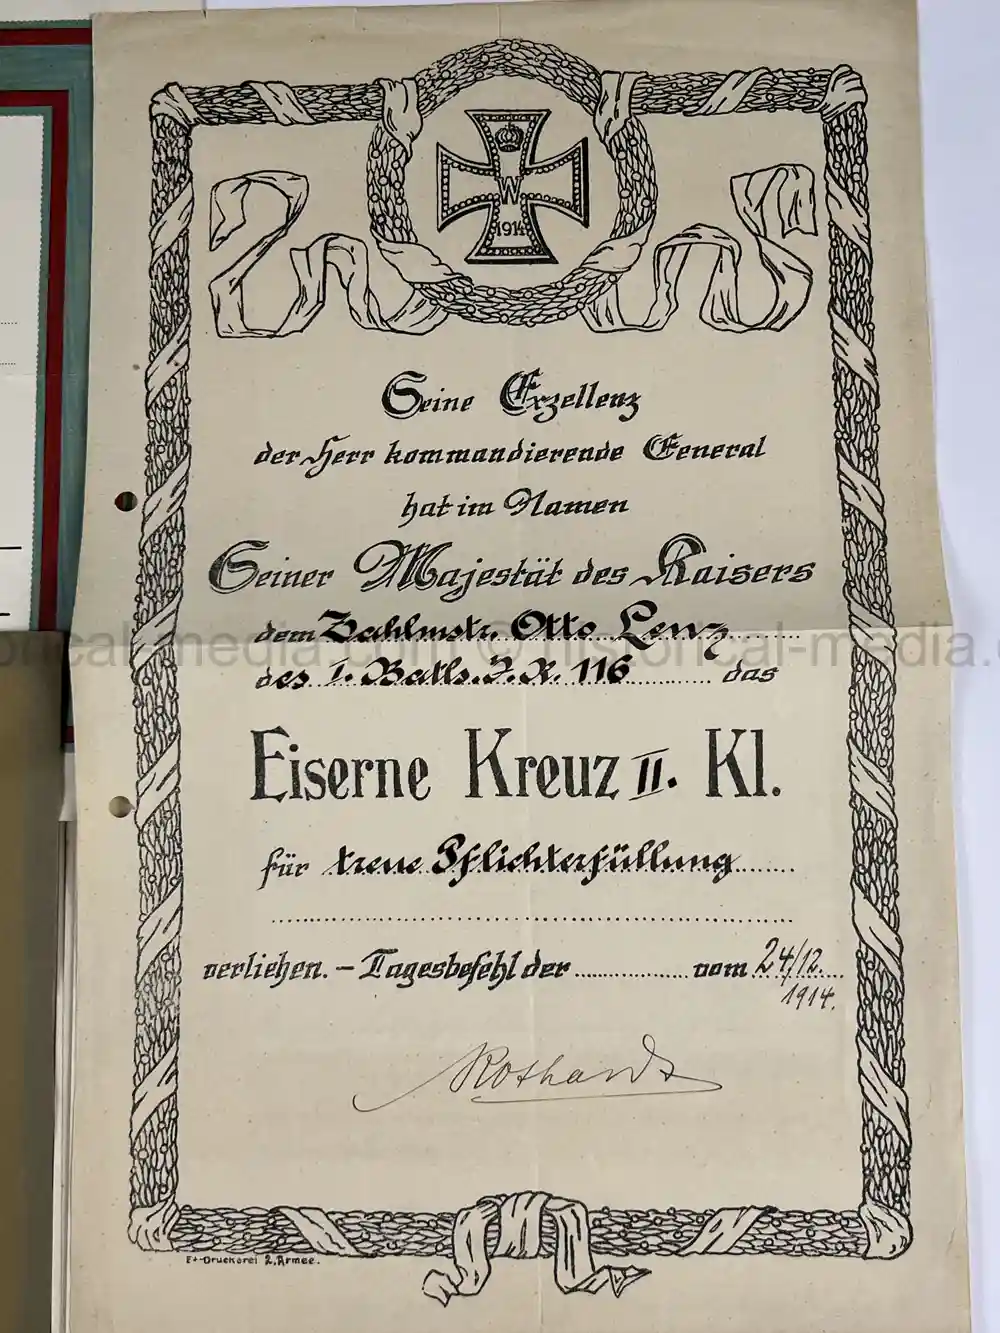 W
1914
Seine Exzellenz
der Herr kommandierende General
hat im Namen
Seiner Majestät des Kaisers
dem Zahlmstr. Otto Lenz
orical-media.com © historical-media.c
des I. Batls. J. R. 116 das
Eiserne Kreuz II. Kl.
für treue Pflichterfüllung
verliehen. – Tagesbefehl der vom 24/12.
1914.
Et-Druckerei 2. Armee.